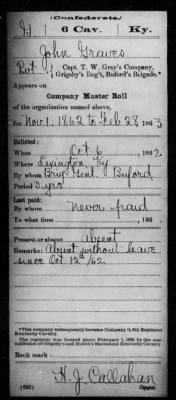 (Confederate.)
G 6 Cav. Ky.
John Graves
Pvt., Capt. T. W. Gray's Company,
Grigsby's Reg't, Buford's Brigade.*
Appears on
Company Muster Roll
of the organization named above,
for Nov 1, 1862 to Feb 28, 1863
Enlisted:
When Oct 6, 1862.
Where Lexington, Ky
By whom Brig. Genl. Buford
Period 3 yrs
Last paid:
By whom never paid
To what time , 186 .
Present or absent Absent
Remarks: Absent without leave
since Oct 12th/62
*This company subsequently became Company G, 6th Regiment
Kentucky Cavalry.
The regiment was formed about February 1, 1863, by the con-
solidation of Grigsby's and Butler's Battalions Kentucky Cavalry.
Book mark:
H. J. Callahan
(642) Copyist.